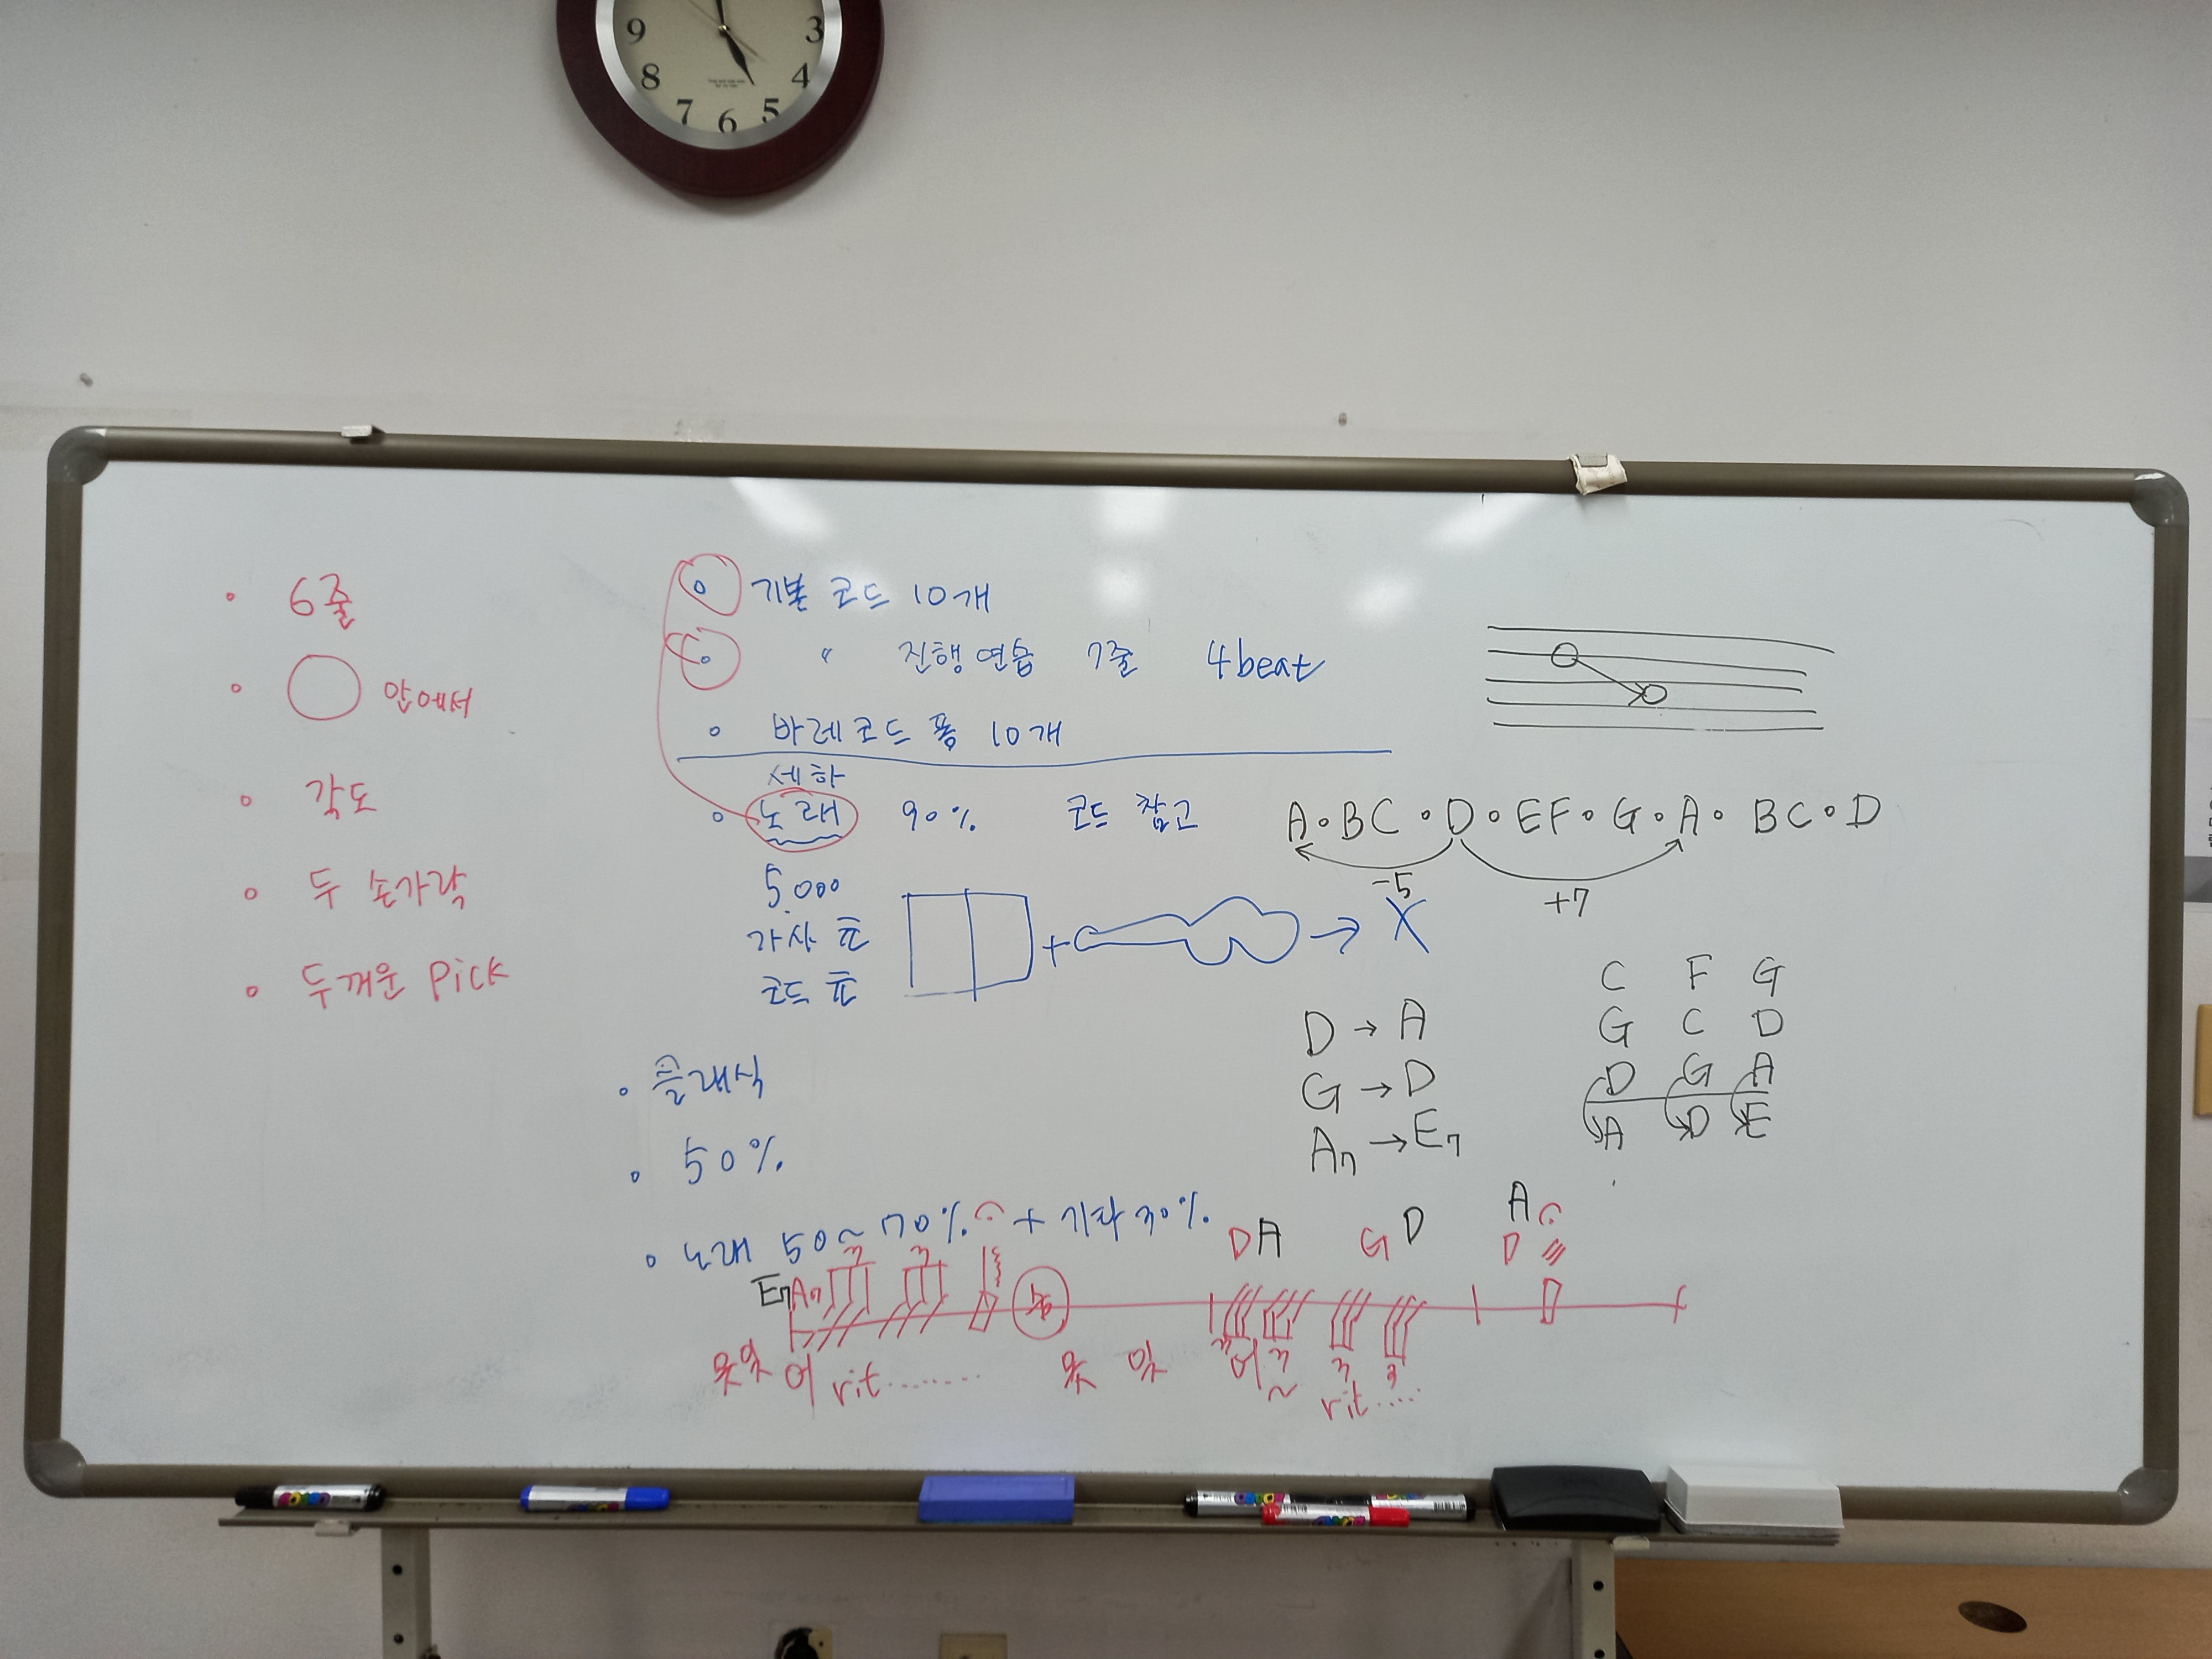 9 3
8 4
7 6 5
• 6줄
• 안에서
• 각도
• 두 손가락
• 두꺼운 Pick
• 기본 코드 10개
• 〃 진행연습 7줄 4beat
• 바레코드 폼 10개
세하
• 노래 90% 코드 참고
5.000
가사 표
코드 표
+ → X
• 클래식
• 50%
• 노래 50~70% + 기타 30%
A•BC•D•EF•G•A•BC•D
-5 +7
D → A
G → D
A7 → E7
C F G
G C D
D G A
A D E
D A G D A
D
E7 A7 3 3
못 잊 어 rit........ 못 잊 어 ~ rit....
3 3 3 3